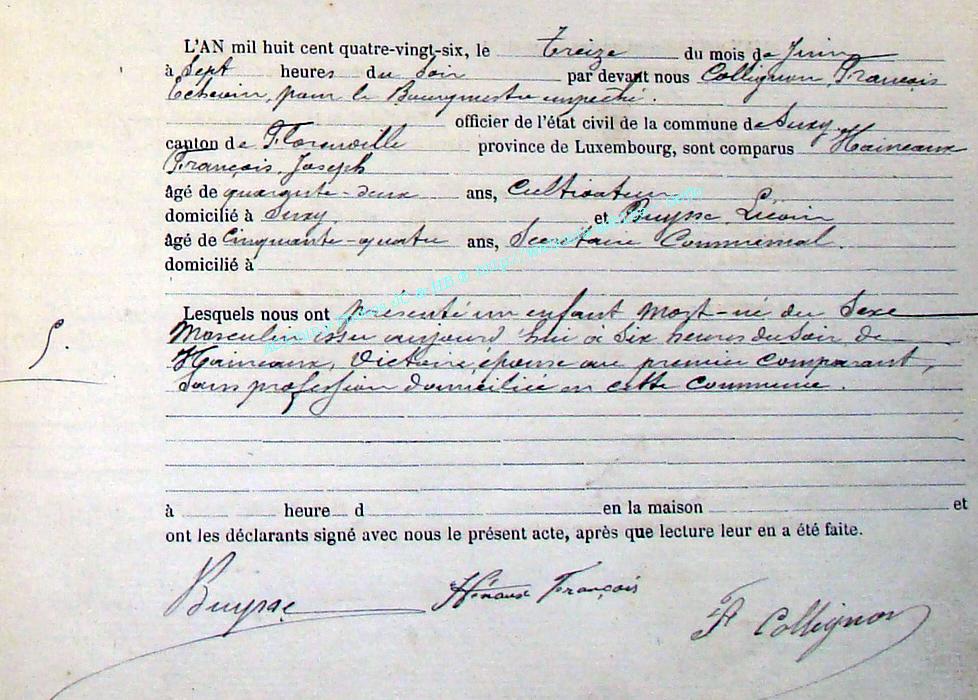 L'AN mil huit cent quatre-vingt-six, le treize du mois de Juin
à Sept heures du Soir par devant nous Collignon, François
Echevin, pour le Bourgmestre empêché.
officier de l'état civil de la commune de Suxy
canton de Florenville province de Luxembourg, sont comparus Haineaux
François Joseph
âgé de quarante-deux ans, Cultivateur
domicilié à Suxy, et Buysse Liévin
âgé de Cinquante-quatre ans, Secrétaire Communal.
domicilié à
Lesquels nous ont présenté un enfant mort-né du Sexe
Masculin issu aujourd'hui à Six heures du Soir, de
Haineaux, Victoire, épouse au premier comparant,
Sans profession domiciliée en cette commune.
5.
à heure d en la maison et
ont les déclarants signé avec nous le présent acte, après que lecture leur en a été faite.
Buysse Hénaux François F Collignon